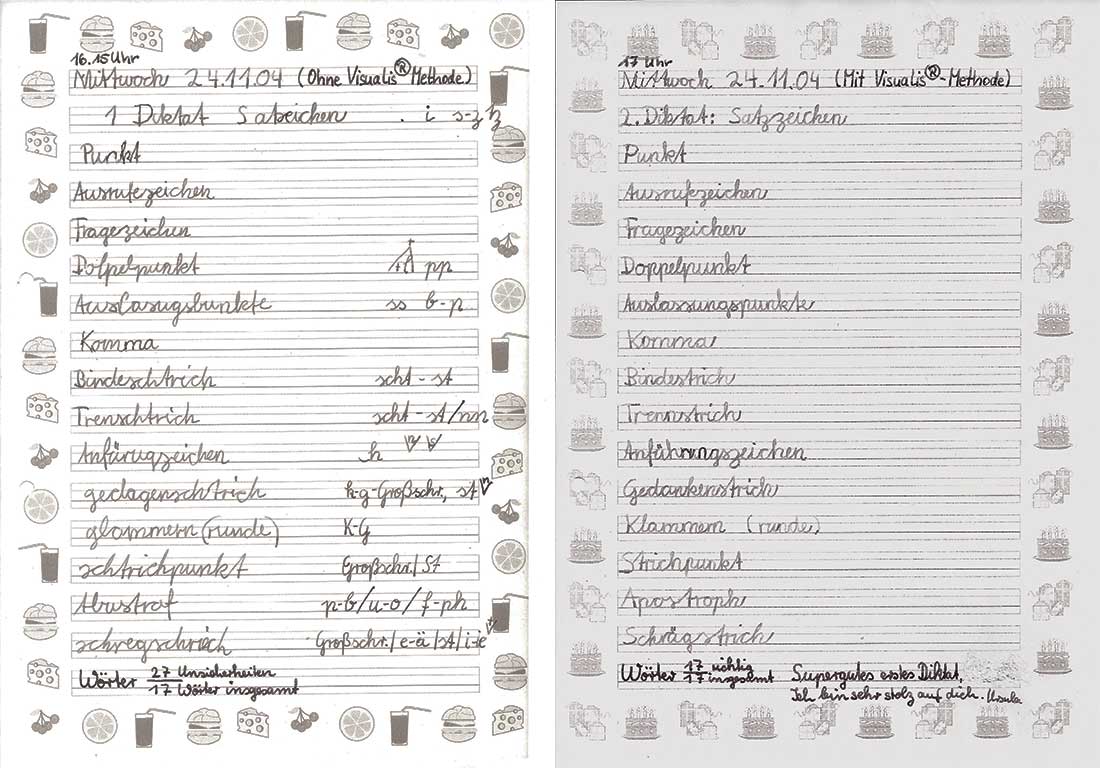 16.15 Uhr
Mittwoch 24.11.04 (Ohne Visualis®Methode)
1 Diktat Sateichen . i s-z tz
Punkt
Ausrufezeichen
Fragezeichen
Dolpelpunkt pp
Auslasugsbunkte ss b-p
Komma
Bindeschtrich scht - st
Trenschtrich scht - st/nn
Anfärugzeichen h
gedagenschtrich k-g-Großschr., st
glammern (runde) K-G
schtrichpunkt Großschr./St
Abustrof p-b/u-o/f-ph
schregschrich Großschr./e-ä/st/i-ie
Wörter 27 Unsicherheiten
17 Wörter insgesamt
17 Uhr
Mittwoch 24.11.04 (Mit Visualis®-Methode)
2. Diktat: Satzzeichen
Punkt
Ausrufzeichen
Fragezeichen
Doppelpunkt
Auslassungspunkte
Komma
Bindestrich
Trennstrich
Anführungszeichen
Gedankenstrich
Klammern (runde)
Strichpunkt
Apostroph
Schrägstrich
Wörter 17 richtig Supergutes erstes Diktat,
17 insgesamt Ich bin sehr stolz auf dich. Ursula